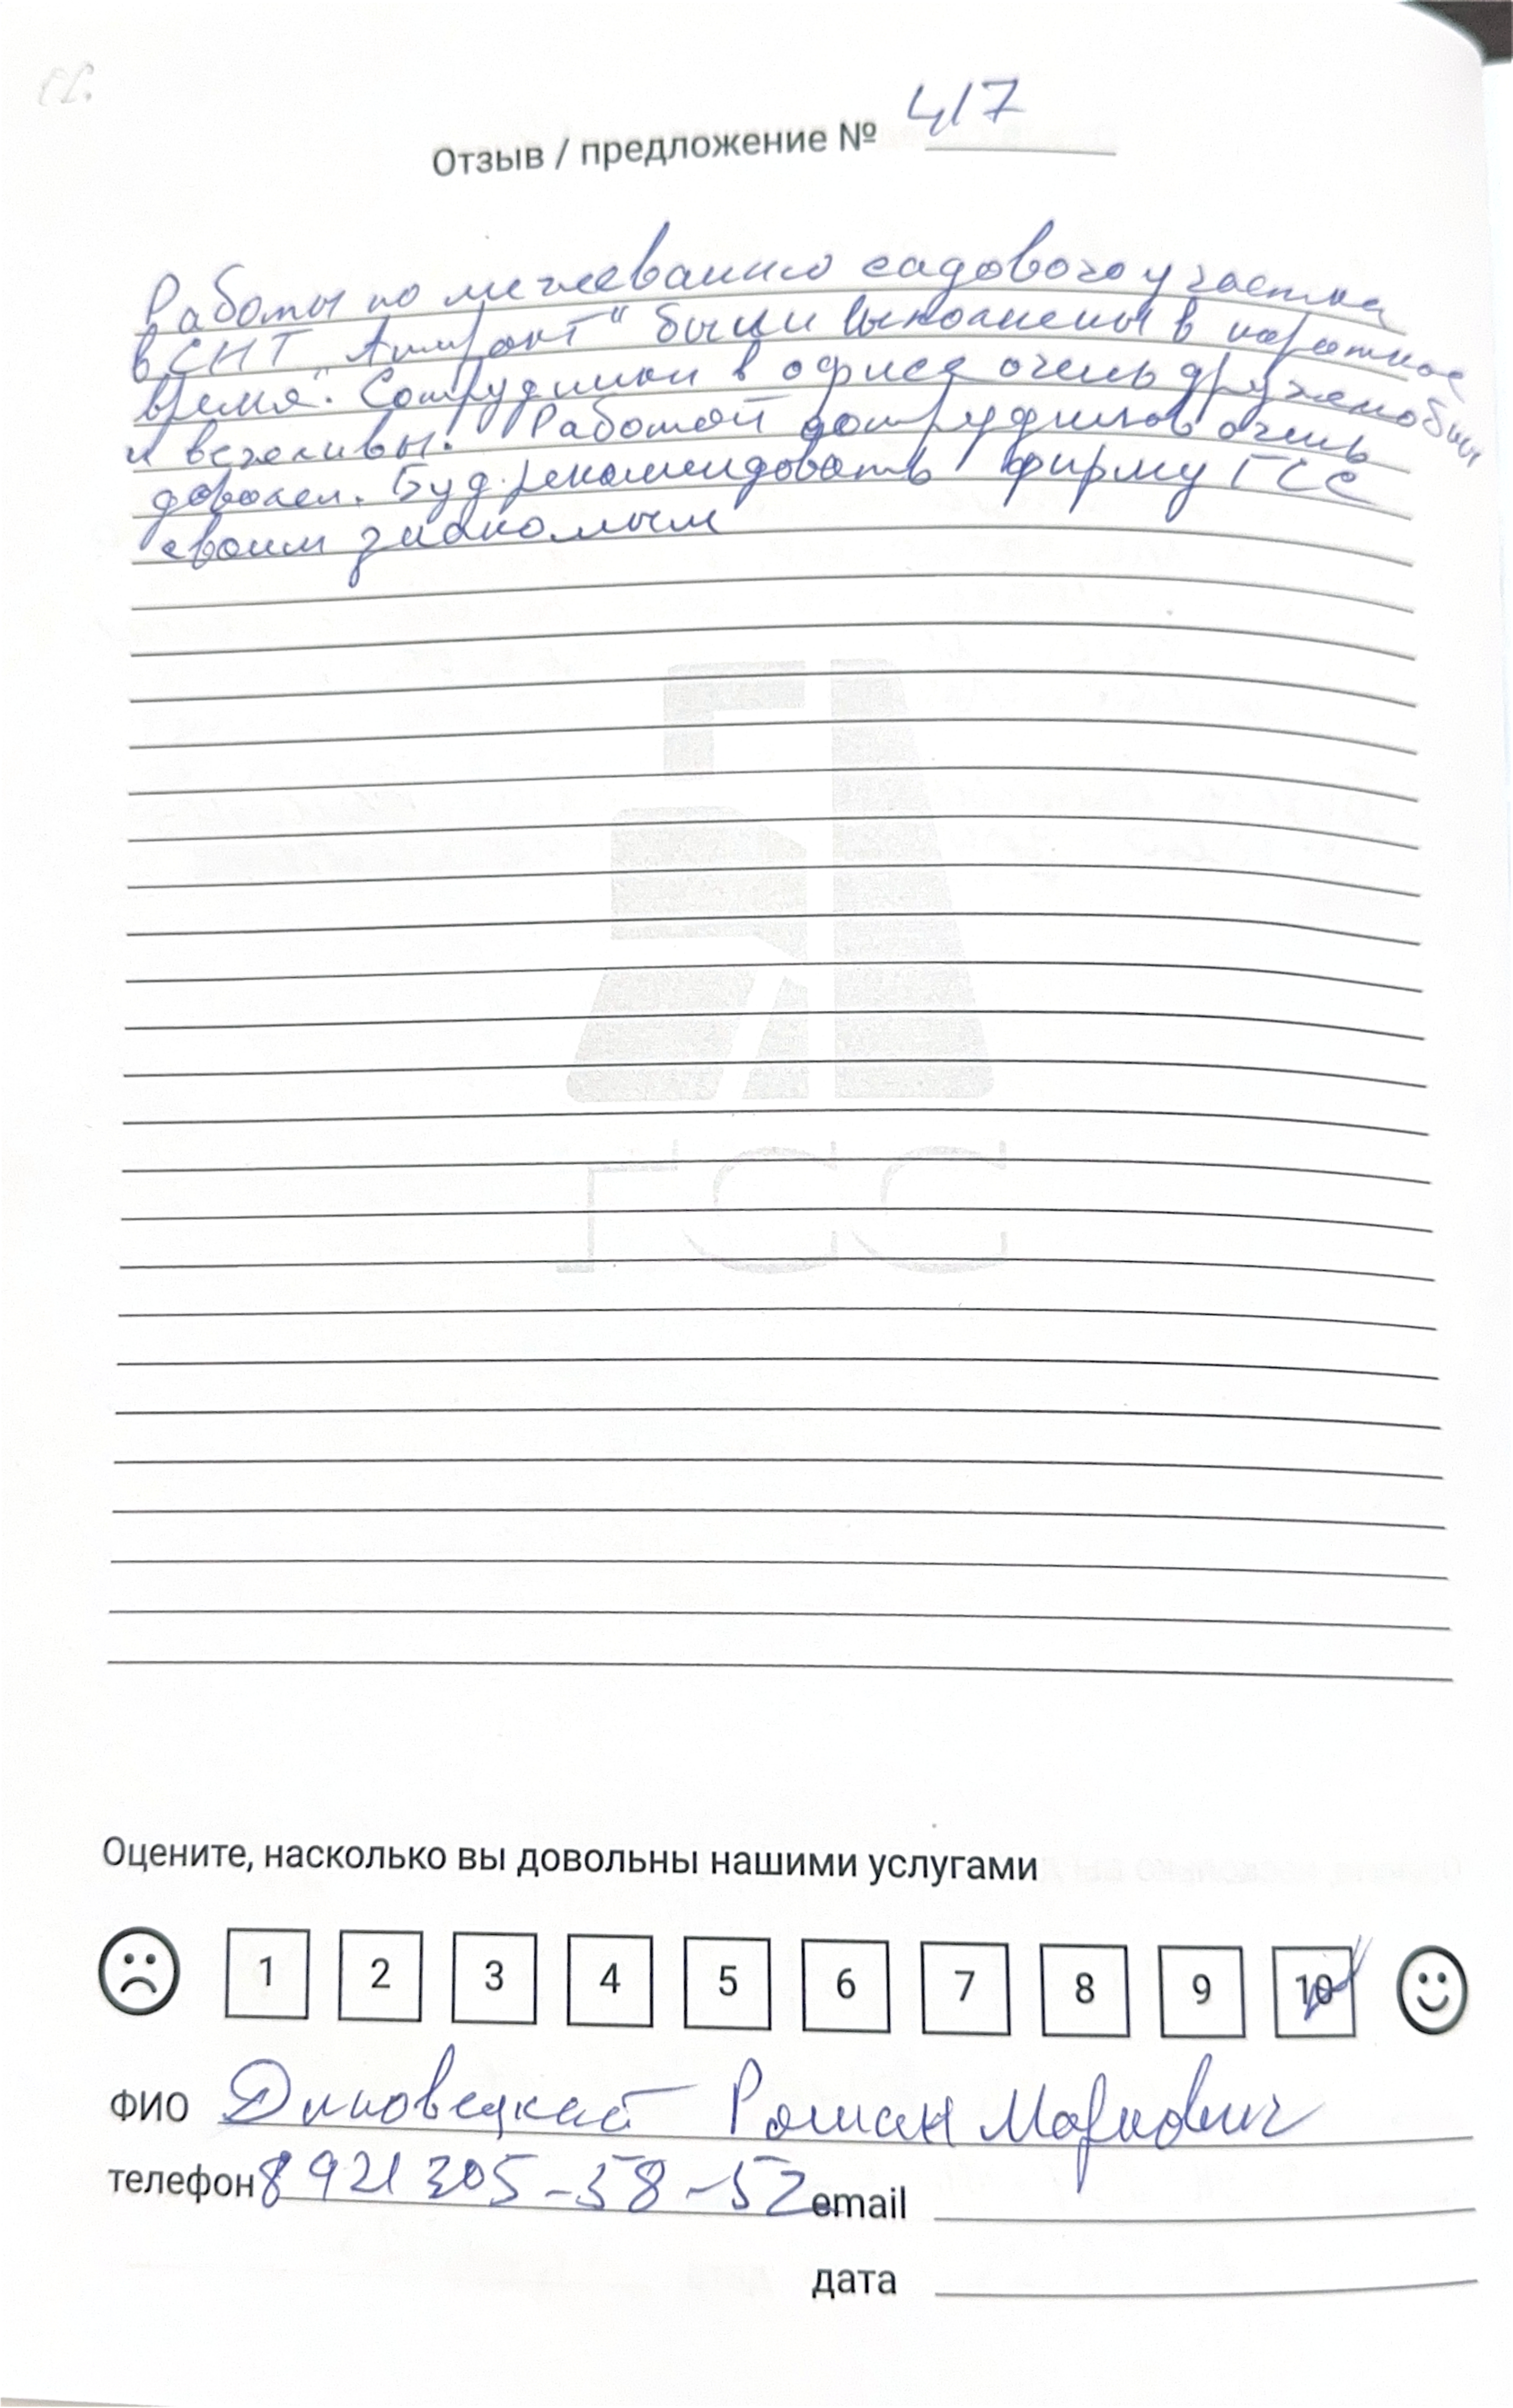 Отзыв / предложение № 417
Работы по межеванию садового участка
в СНТ "Аннфакт" были выполнены в короткое
время. Сотрудники в офисе очень дружелюбны
и вежливы. Работой сотрудников очень
доволен. Буд. рекомендовать фирму ГСС
своим знакомым
ГСС
Оцените, насколько вы довольны нашими услугами
1 2 3 4 5 6 7 8 9 10
ФИО Роман Маркович
телефон 8 921 305-58-52 email
дата